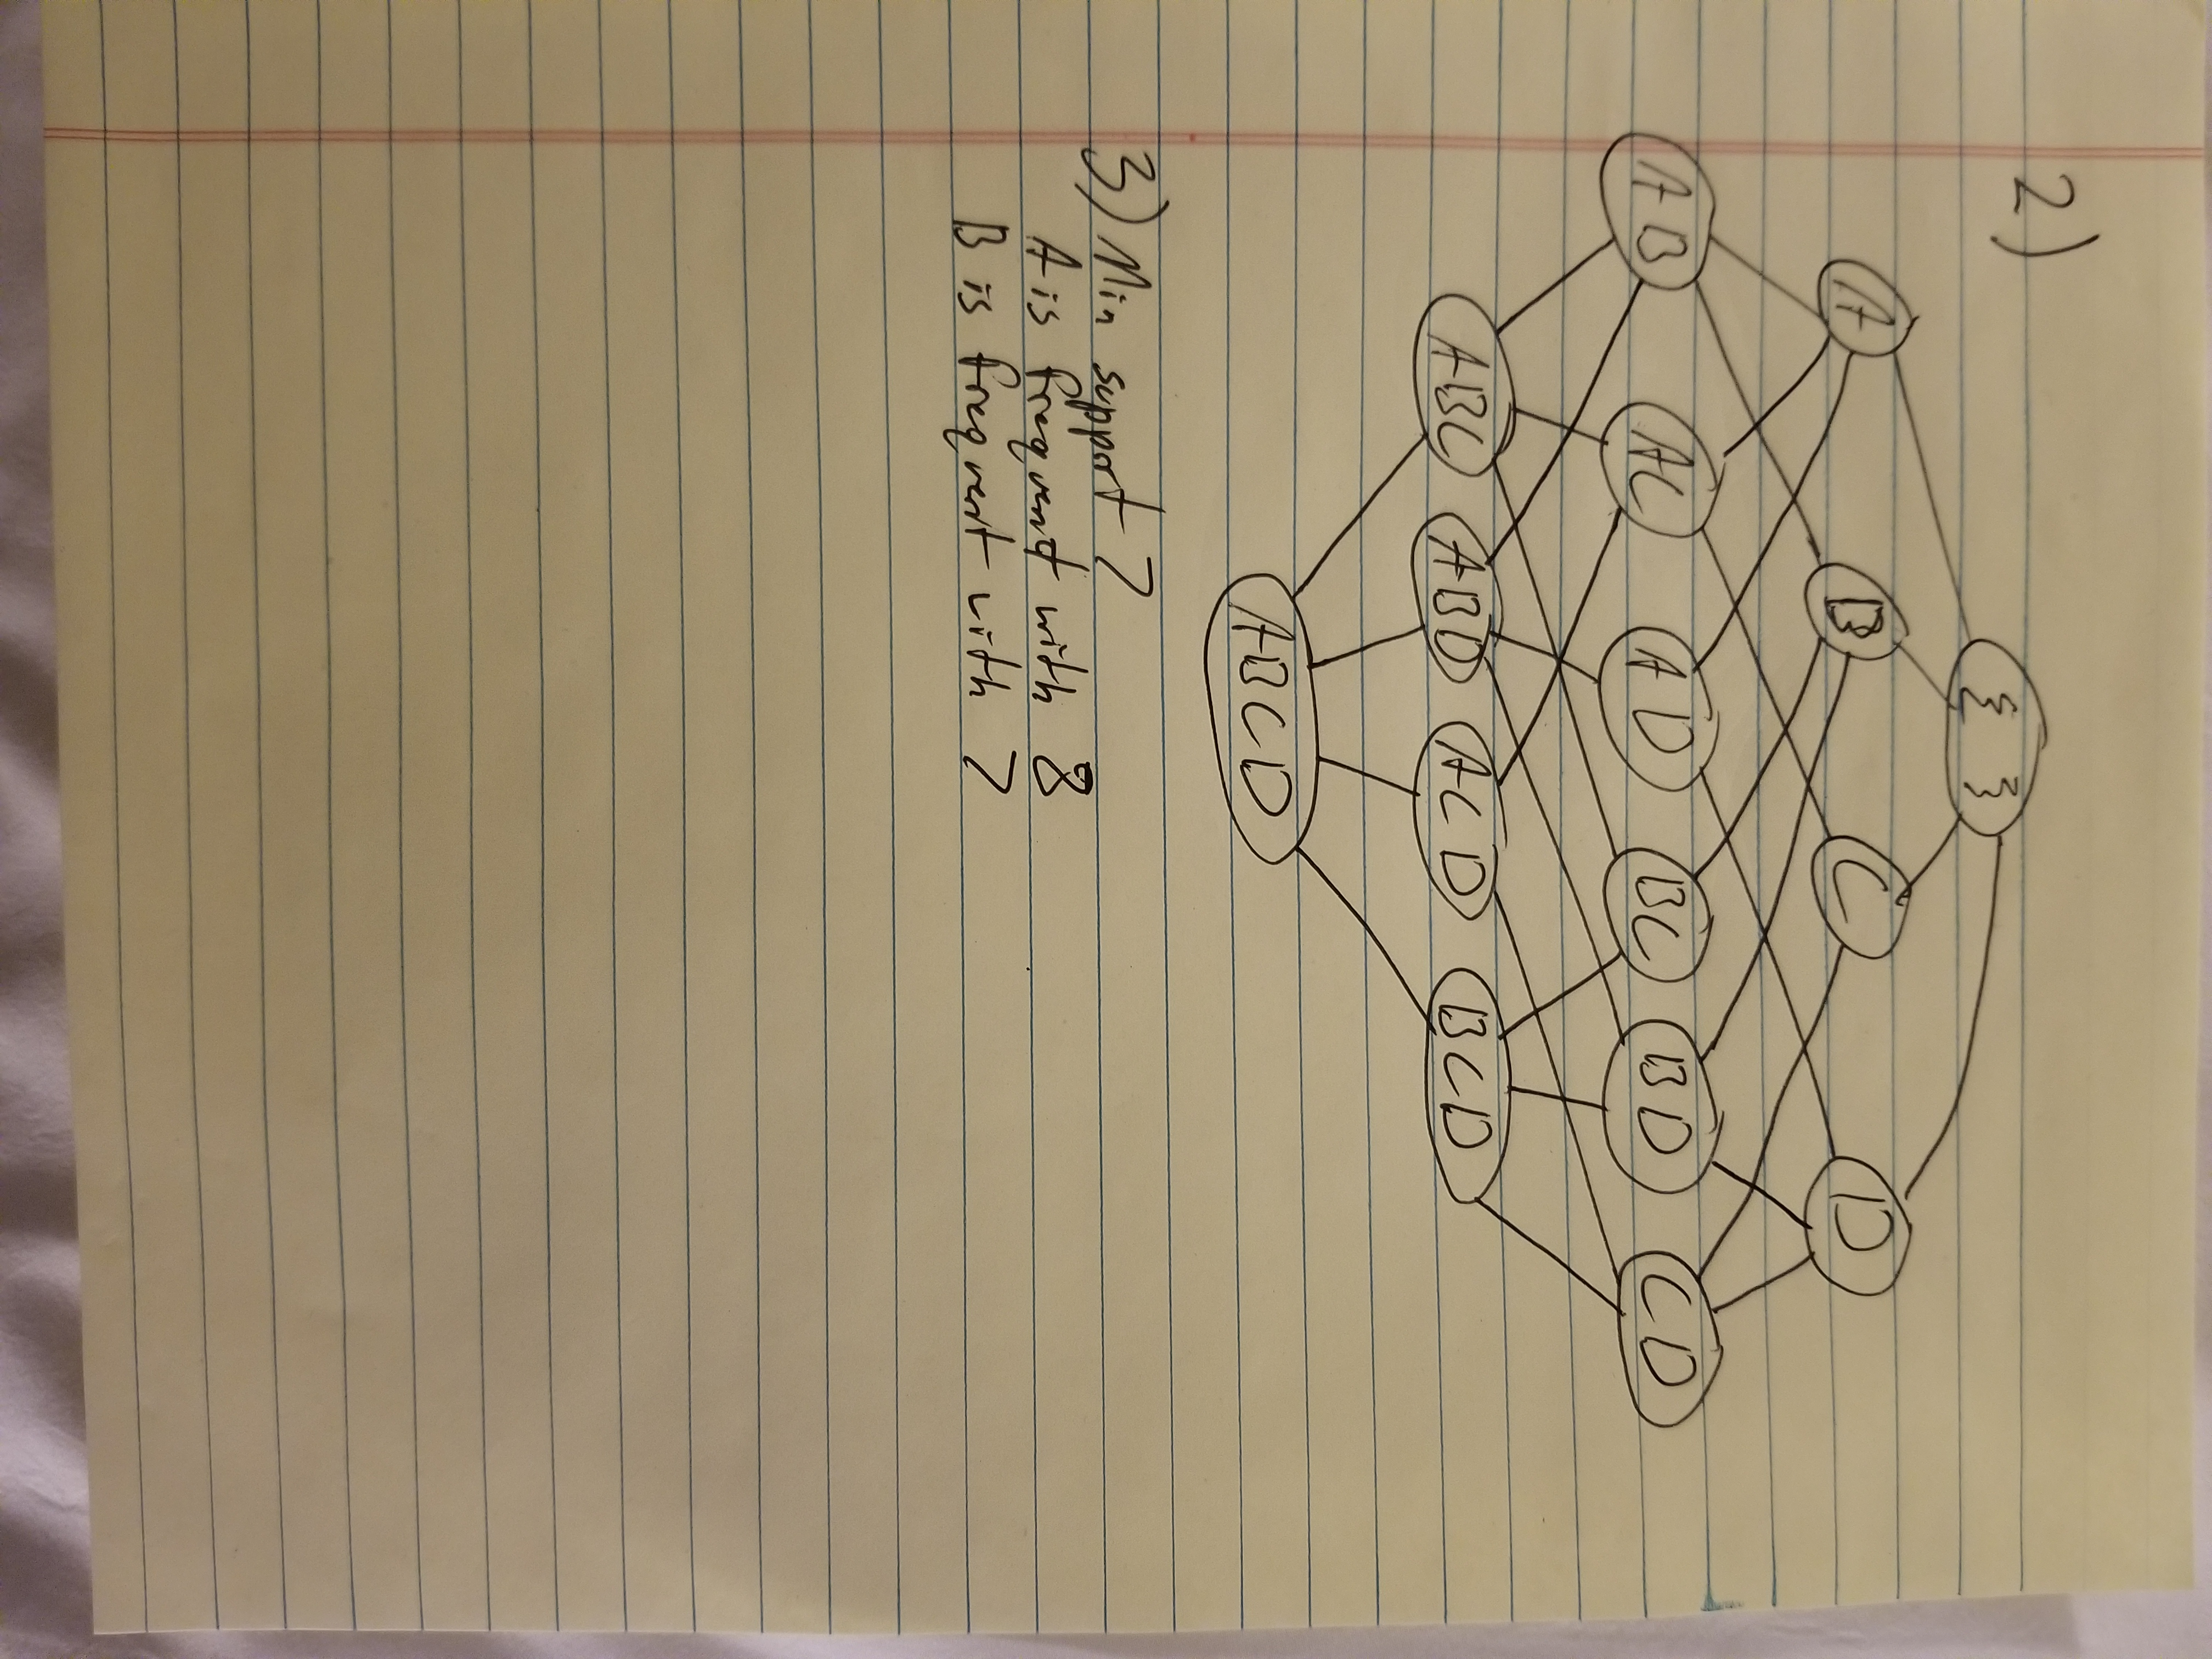 2)
{ }
A B C D
AB AC AD BC BD CD
ABC ABD ACD BCD
ABCD
3) Min support 7
A is frequent with 8
B is frequent with 7